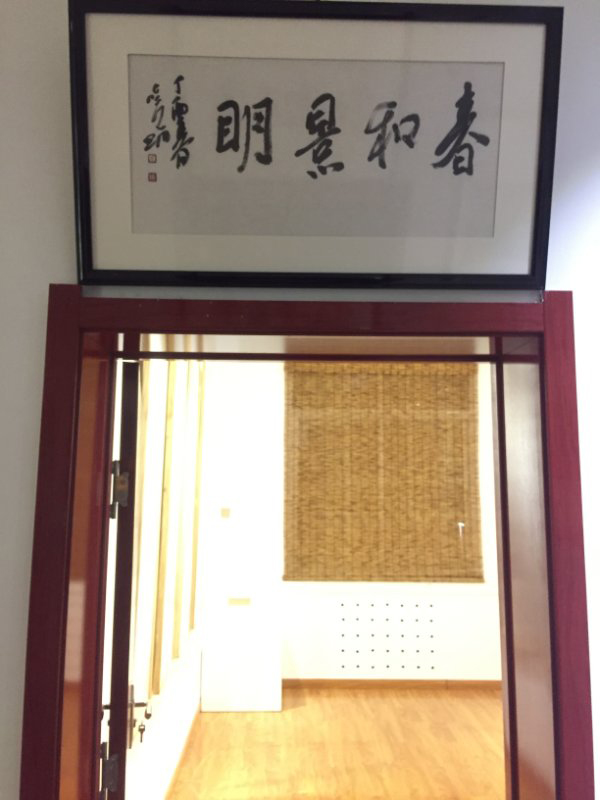 春和景明
丁酉春